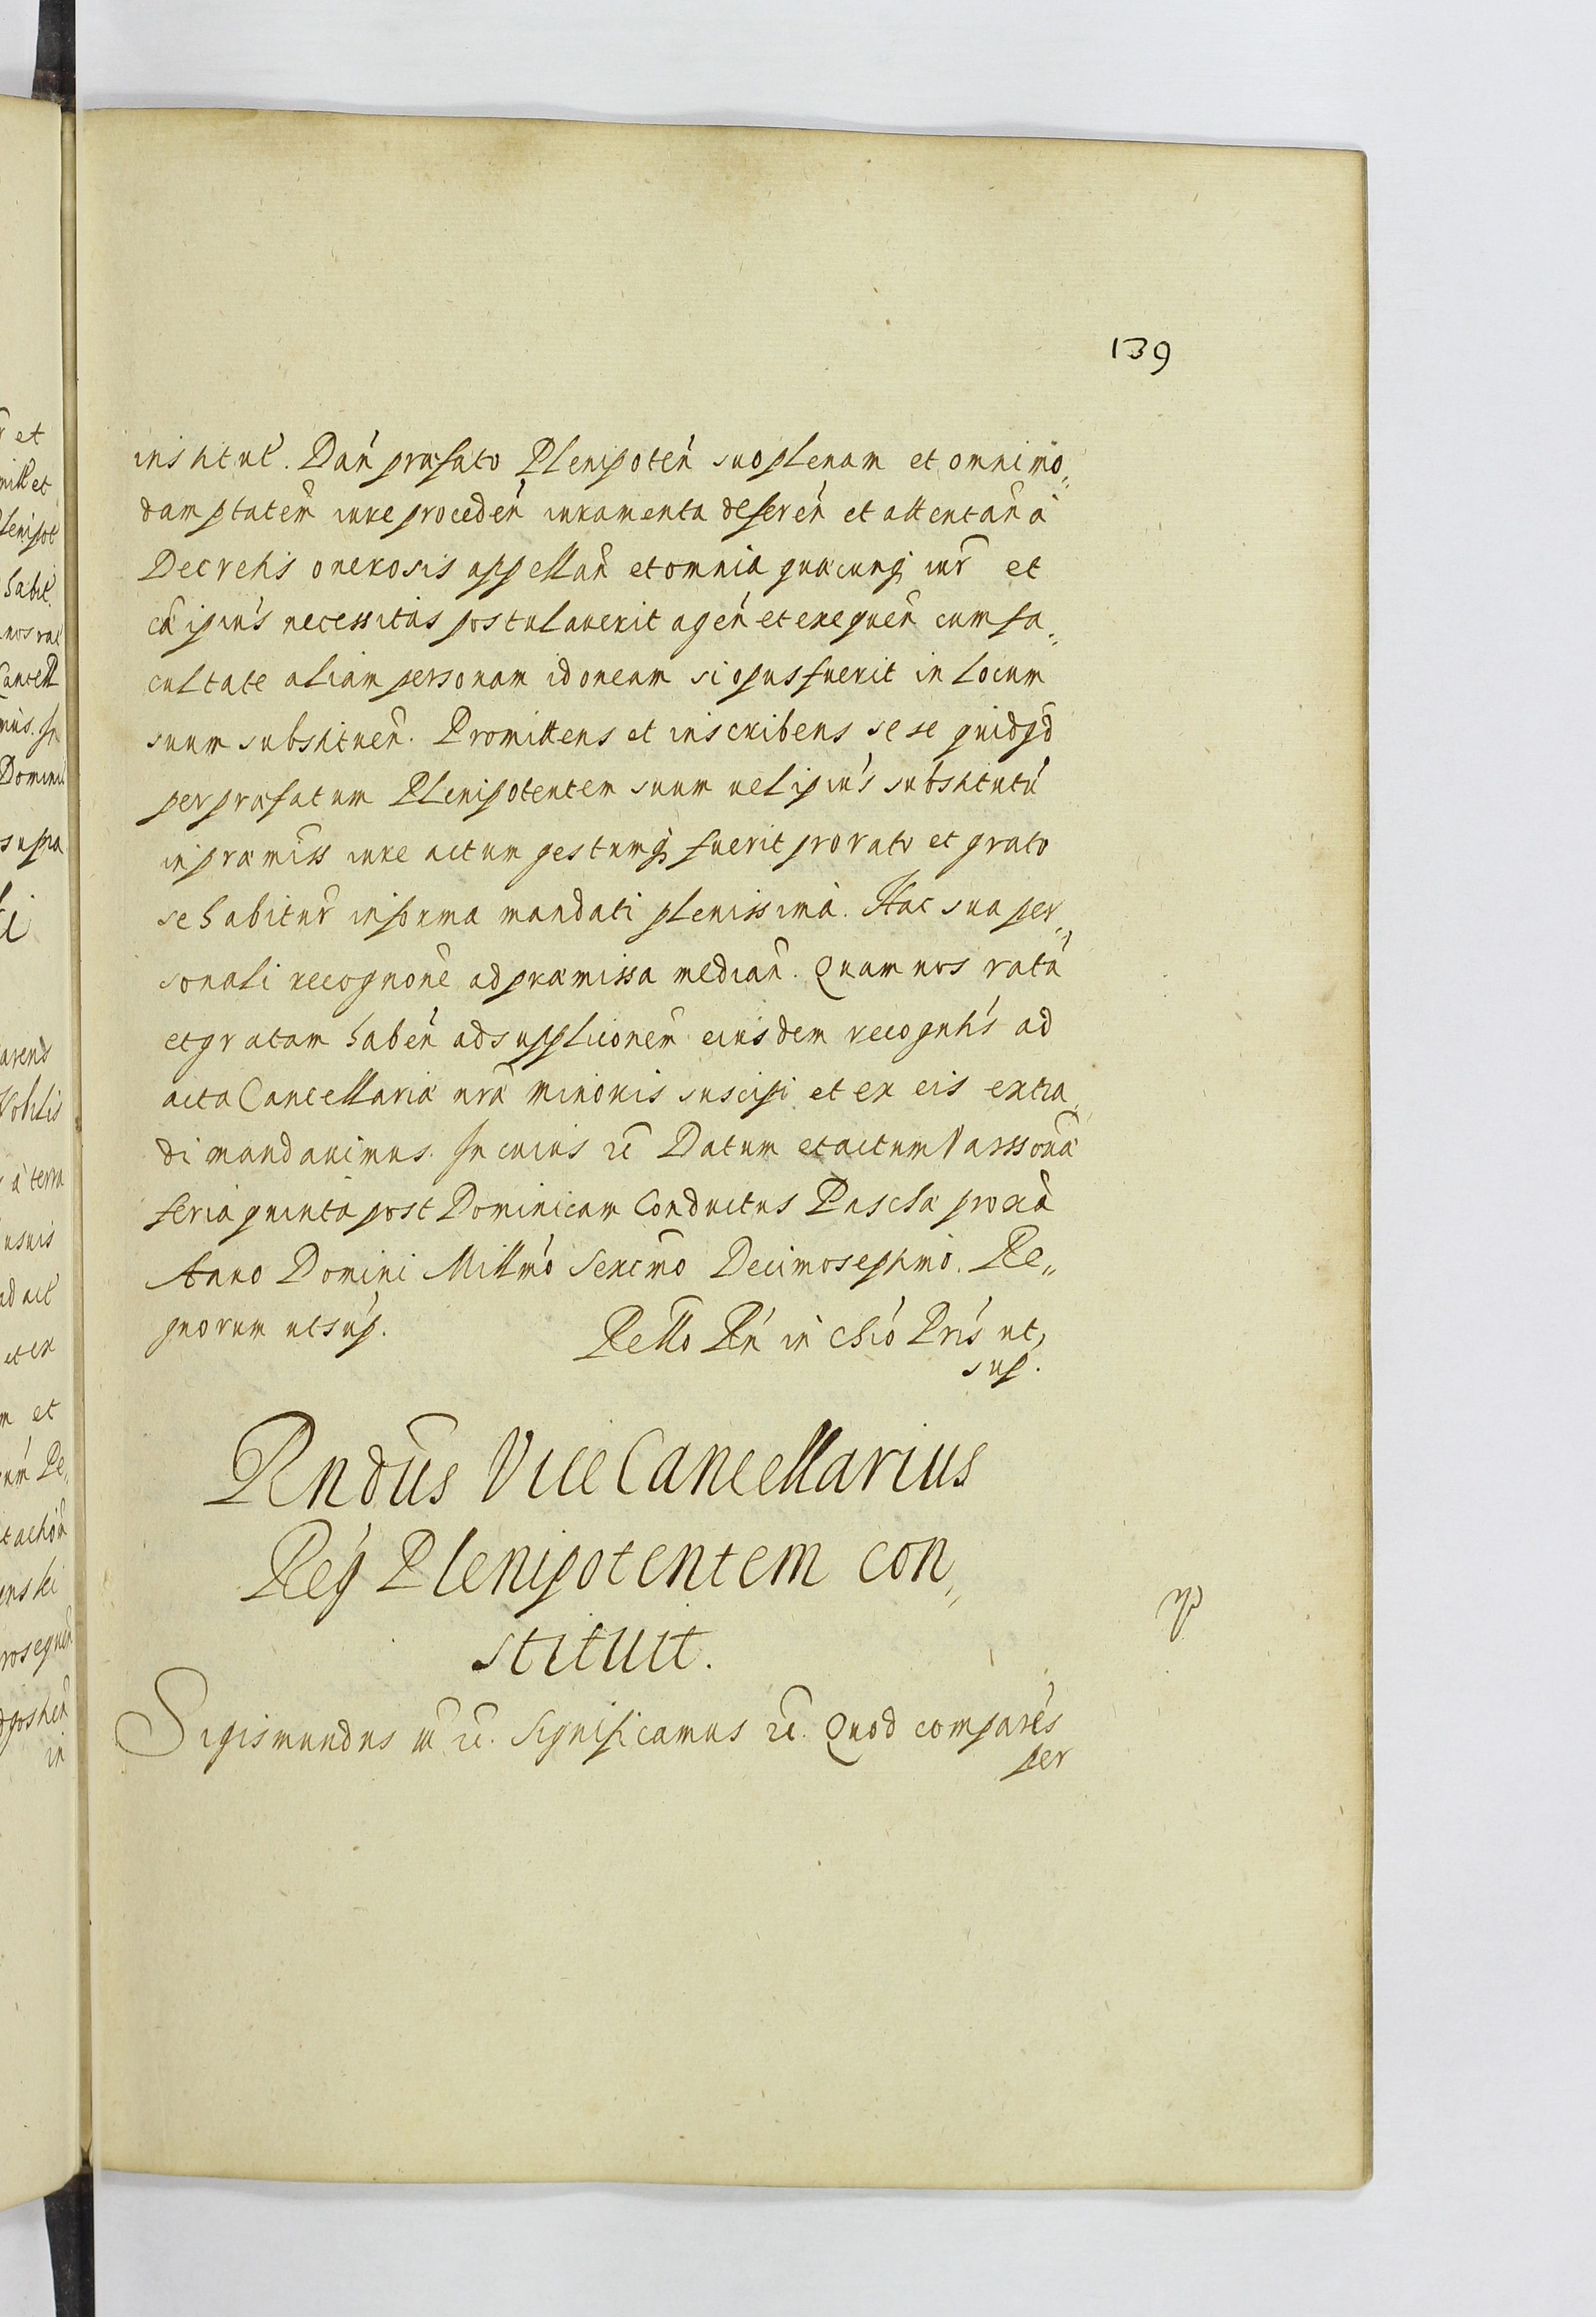 139
institut. Dan̄ præfato Plenipoten̄ suo plenam et omnimo„
dam ptatem̄ iure proceden̄ iuramenta deferen̄ et attentan̄ à
Decretis onerosis appellan̄ et omnia quæcunq iur̄ et
cæ ipius̄ necessitas postulauerit agen̄ et exequen̄ cum fa„
cultate aliam personam idoneam si opus fuerit in locum
suum substituen̄. Promittens et inscribens sese quidqd̄
per præfatum Plenipotentem suum uel ipius̄ substitutū
in præmiss iure actum gestumq; fuerit pro rato et grato
se habitur̄ in forma mandati plenissima. Hac sua per„
sonali recognone̅ ad præmissa median̄. Quam nos ratā
et gratam haben̄ ad supplicionem̄ eiusdem recognitis̄ ad
acta Cancellariæ nrǣ minoris suscipi et ex eis extra„
di mandauimus. In cuius rē Datum et actum Varssouiæ
feria quinta post Dominicam Conductus Paschæ proxiā
Anno Domini Millmō Sexcmō Decimoseptimo. Re„
gnorum ut sup̄.
Rello Rn̄ in Chō Pris̄ ut
sup.
Rndūs ViceCancellarius
Regń Plenipotentem con„
stituit.
Sigismundus III rē. Significamus rē. Quod comparēs
per